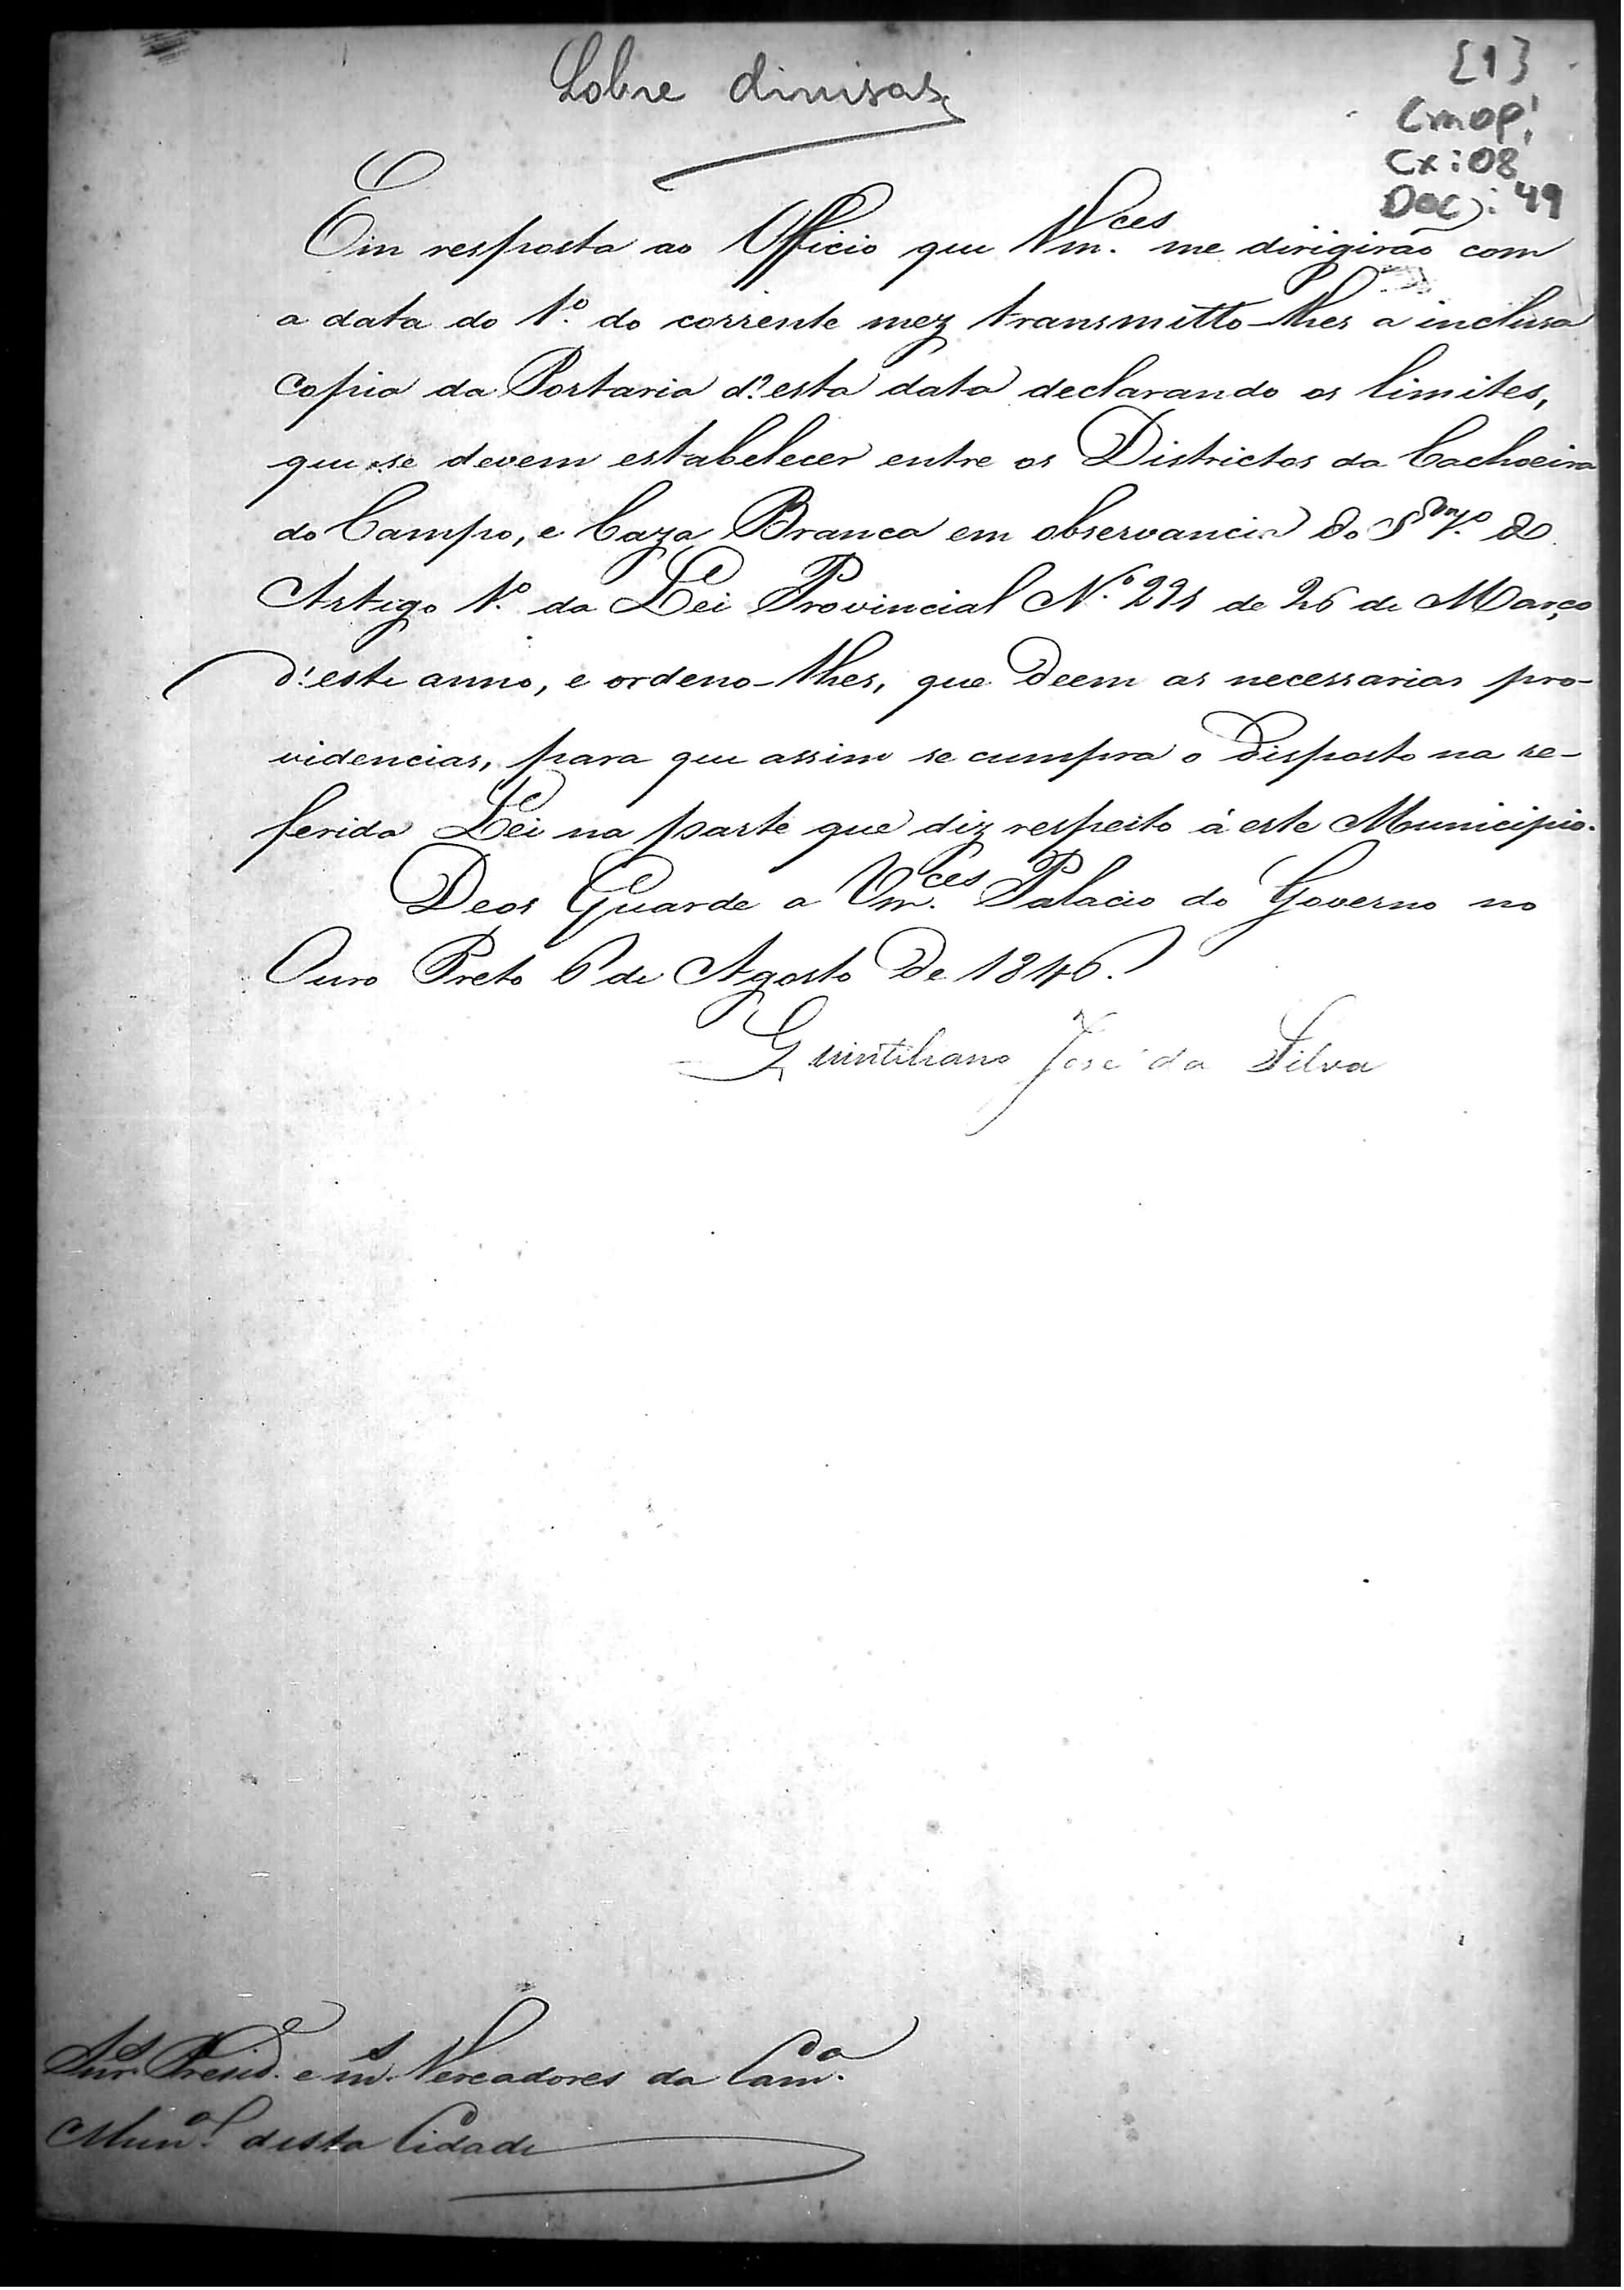 Sobre divisas
[1]
CMOP!
Cx: 08
Doc: 49
Em resposta ao Officio que Vm.ces me dirigirão com
a data do 1.º do corrente mez transmitto-lhes a inclusa
copia da Portaria d'esta data declarando os limites,
que se devem estabelecer entre os Districtos da Cachoeira
do Campo, e Caza Branca em observancia do §
Artigo 1.º da Lei Provincial N.º 271 de 26 de Março
d'este anno, e ordeno-lhes, que deem as necessarias pro-
videncias, para que assim se cumpra o disposto na re-
ferida Lei na parte que diz respeito á este Municipio.
Deos Guarde a Vm.ces Palacio do Governo no
Ouro Preto 6 de Agosto de 1846.
Quintiliano José da Silva
Snr.s Presid.e e m.s Vereadores da Cam.a
Mun.al desta Cidade